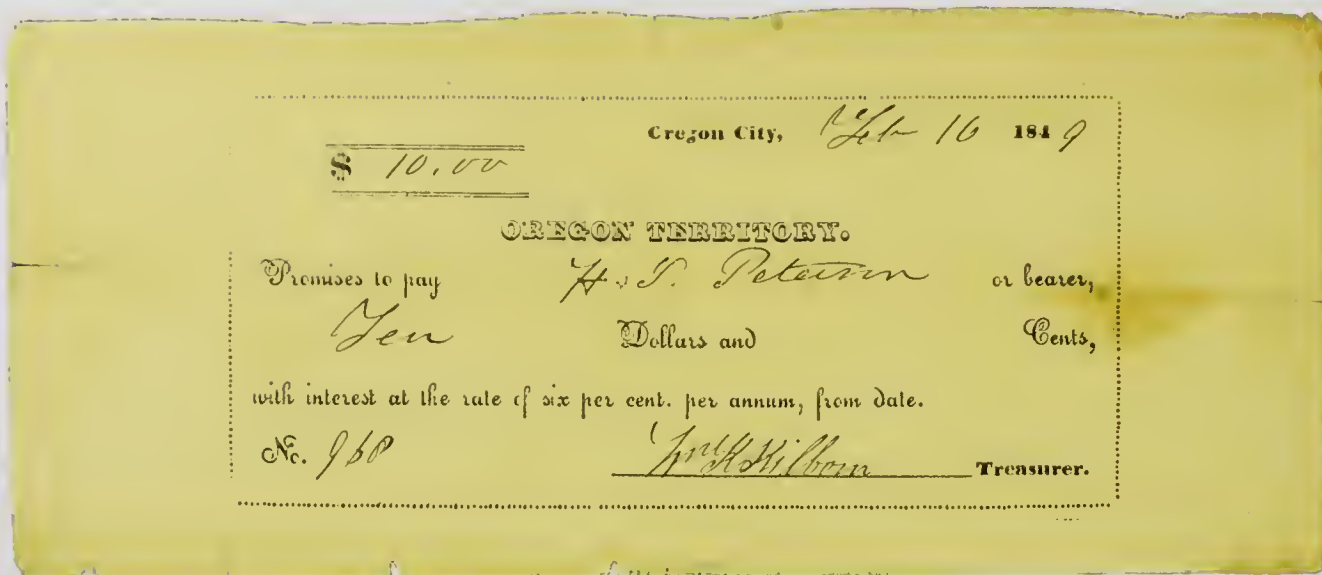 Oregon City, Feb 16 1849
$ 10.00
OREGON TERRITORY.
Promises to pay H. T. Peterson or bearer,
Ten Dollars and Cents,
with interest at the rate of six per cent. per annum, from date.
No. 968
Wm K Kilborn Treasurer.